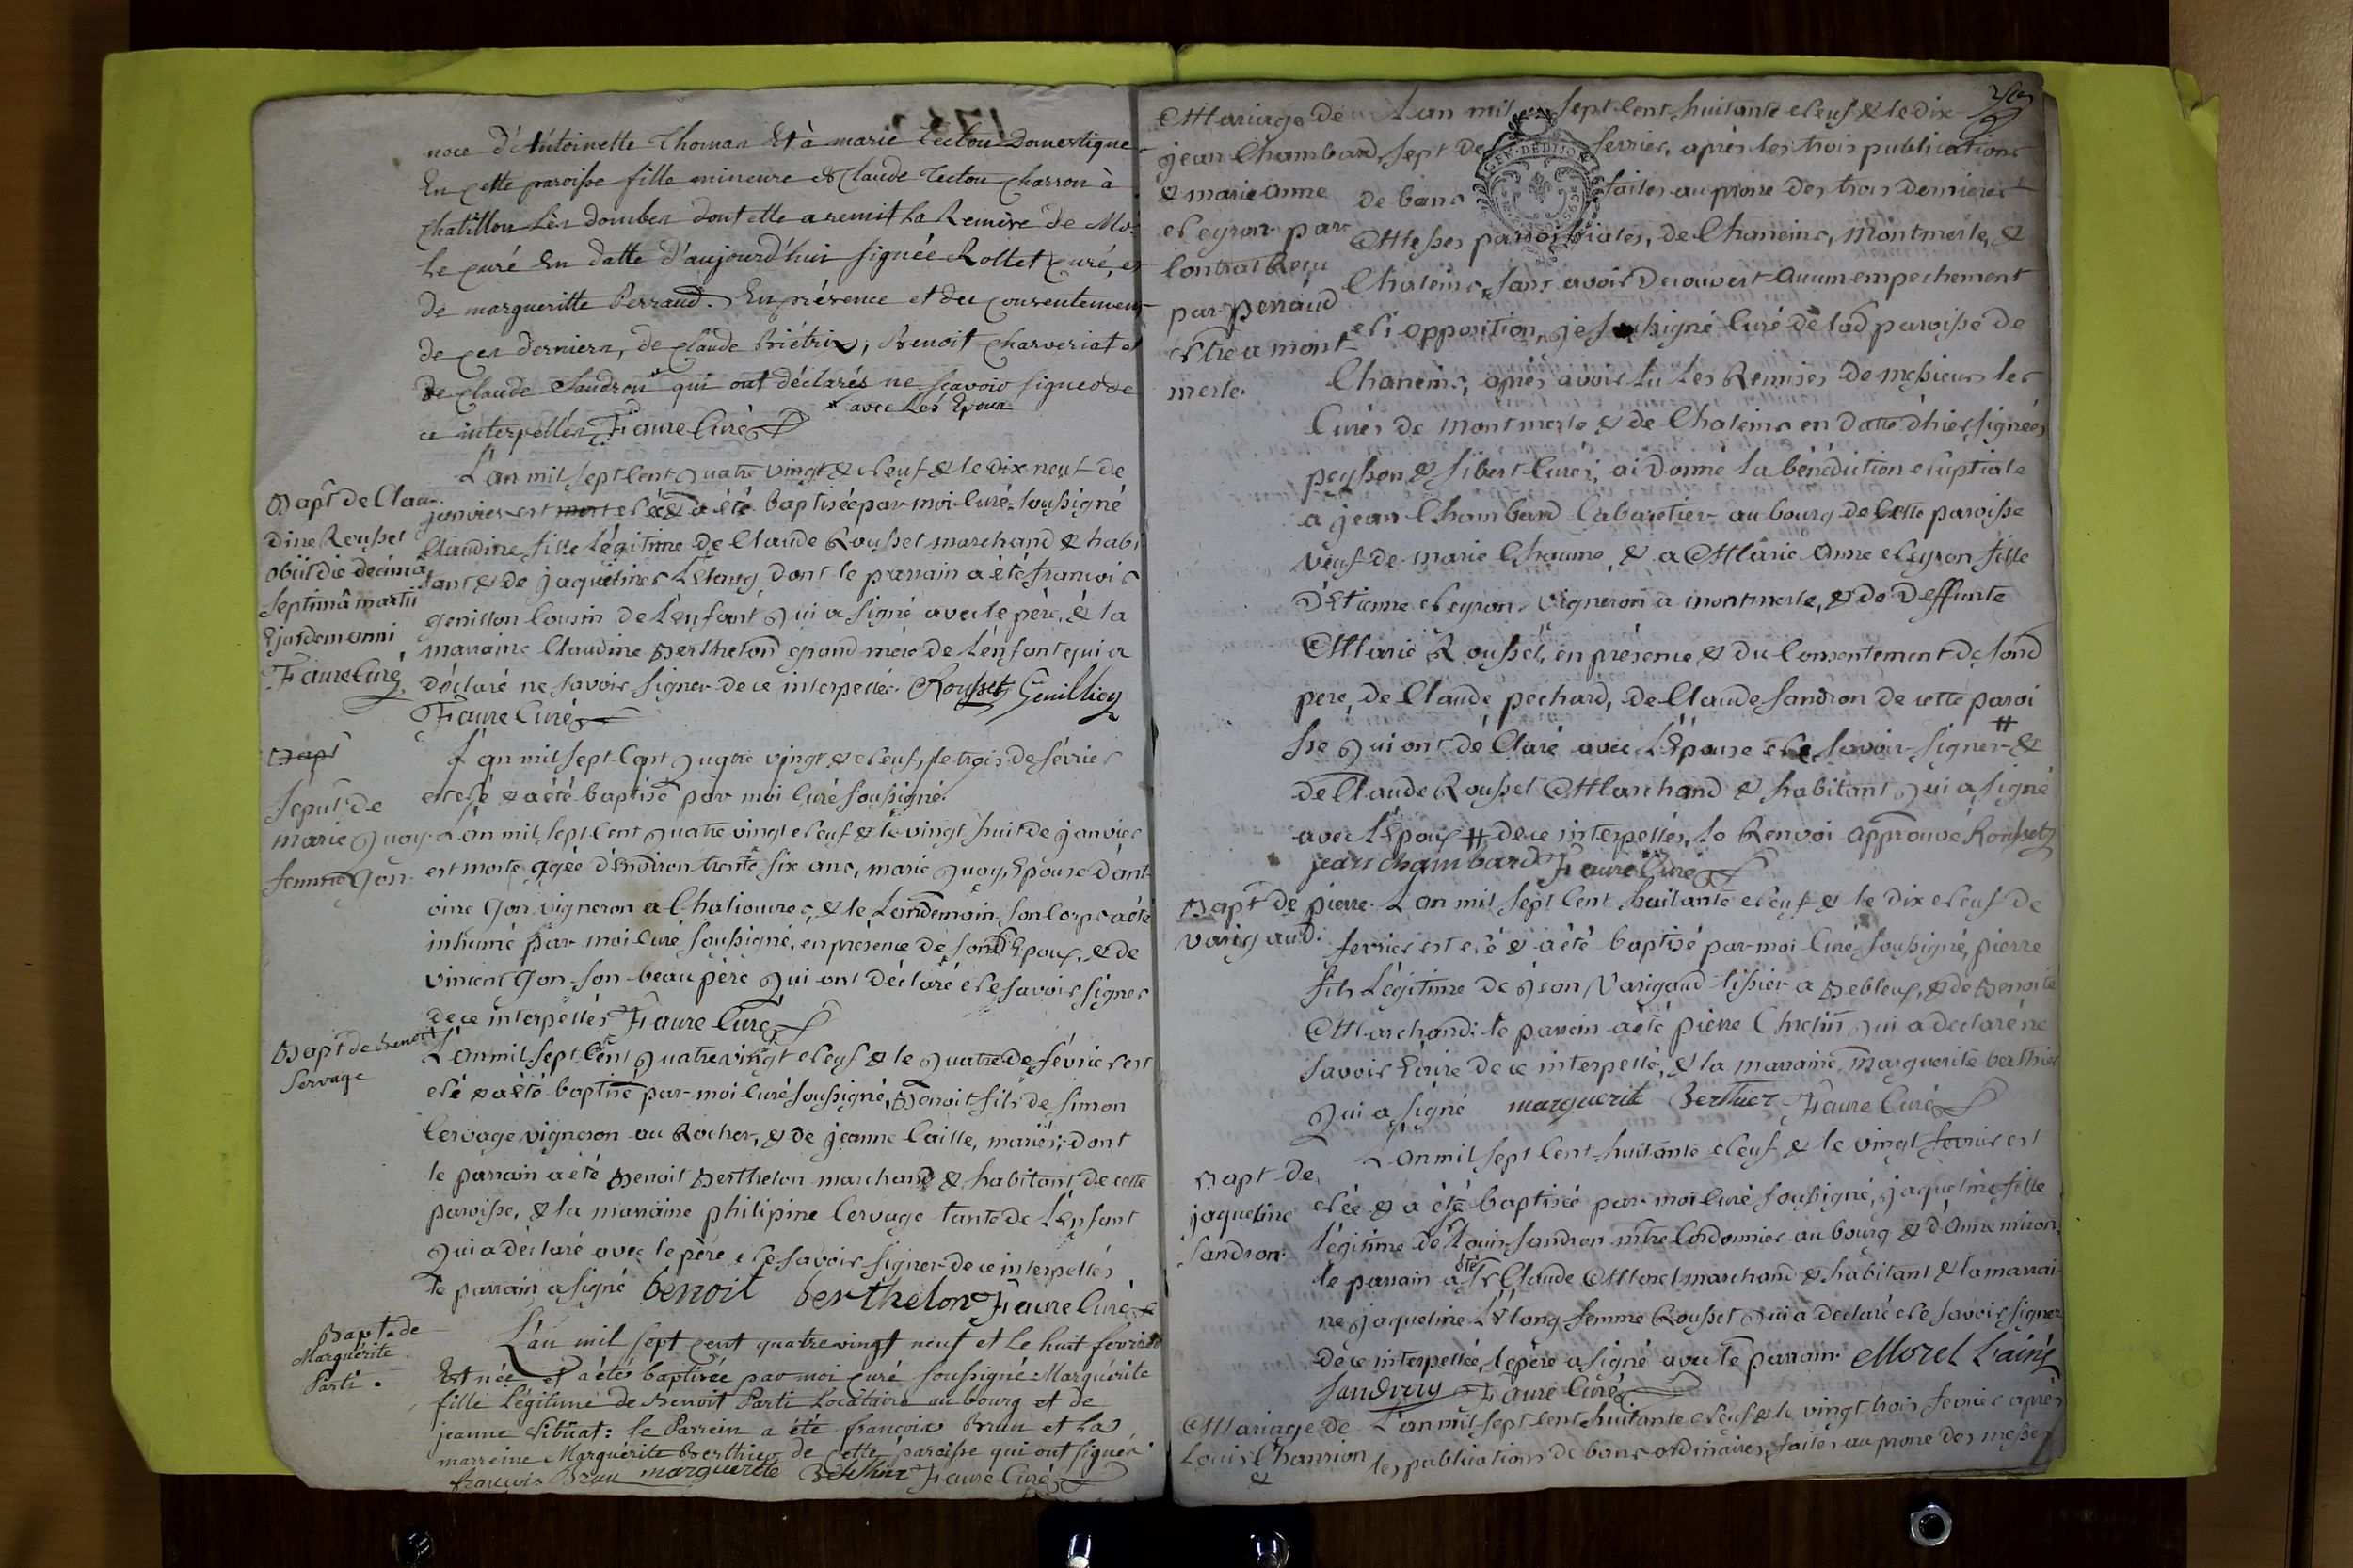 noce d'Antoinette Thoman Et à marie Tectou Domestique
En cette paroisse fille mineure de Claude Tectou charron à
chatillon Lès dombes dont elle a remit La Remise de Mo.r
Le curé En datte d'aujourd'hui signée Rollet curé, et
de margueritte Perraud. En présence et du consentement
de ces derniers, de claude Briétrix, Benoit charveriat et
de claude Sandron* qui ont déclarés ne sçavoir signer de
* avec Les Epoux
ce interpellés Faure Curé
L'an mil sept Cent quatre vingt & neuf & le dix neuf de
Bapt de Clau-
dine Rousset
obiit die decima
septimâ martii
Ejusdem anni
Faure Curé
janvier est mort née & a été baptisée par moi Curé soussigné
Claudine fille Légitime de Claude Rousset marchand & habi
tant & de jaqueline Létang dont le parrain a été francois
genillon Cousin de L'enfant qui a signé avec le père, & la
marraine Claudine Berthelon grand mère de L'enfant qui a
déclaré ne savoir signer de ce interpellée. Rousset Genillion
Faure Curé
Bapt
L'an mil sept Cent quatre vingt & neuf, le trois de février
est né & a été baptisé par moi Curé soussigné.
Sepult de
marie quay
femme Gon.
L'an mil sept Cent quatre vingt neuf & le vingt huit de janvier
est morte agée d'Environ trente six ans, marie quay, Epouse d'ant
oine Gon vigneron a Chaliouvres, & le Landemain son Corps a été
inhumé par moi Curé soussigné, en présence de sond Epoux, & de
vincent Gon son beau père qui ont déclaré ne savoir signer
de ce interpellés Faure Curé
Bapt de Benoit
Servage
L'an mil sept Cent quatre vingt neuf & le quatre de février est
né & a été baptisé par moi Curé soussigné, Benoit fils de simon
Cervage vigneron au Rocher, & de jeanne Caille, mariés; dont
le parrain a été Benoit Berthelon marchand & habitant de cette
paroisse, & la marraine philipine Cervage tante de L'Enfant
qui a déclaré avec le père ne savoir signer de ce interpellés
le parrain a signé benoit berthelon Faure Curé
Bapt. de
Marguérite
Parti.
L'an mil sept cent quatre vingt neuf et Le huit fevrier
Est née et a été baptisée par moi curé soussigné Marguérite
fille Légitime de Benoit Parti Locataire au bourg et de
jeanne Sibuat: le Parrein a été françois Brun et La
marreine Marguérite Berthier de cette paroisse qui ont signés
françois Brun marguerite Berthier Faure Curé
Mariage de
jean Chambard
& marie anne
Neyron par
Contrat Reçu
par Perraud
Ntre a mont
merle.
L'an mil sept Cent huitante neuf & le dix
sept de fevrier, après les trois publications
de bans faites au prone des trois dernieres
Messes parroissiales, de Chaneins, Montmerle, &
Chaleins, sans avoir decouvert aucun empechement
ni opposition, je soussigné Curé de lad paroisse de
Chaneins, après avoir lu les Remises de messieurs les
Curés de Montmerle & de Chaleins en datte d'hier signées
peysson & sibert Curés, ai donné la bénédiction nuptiale
a jean Chambard Cabaretier au bourg de Cette paroisse
veuf de marie Chaume, & a Marie Anne Neyron fille
d'Etienne Neyron vigneron a montmerle, & de Deffunte
Marie Rousset, en présence & du Consentement de sond
pere, de Claude péchard, de Claude sandron de cette paroi
sse qui ont déClaré avec L'Epouse ne savoir signer # &
de Claude Rousset Marchand & habitant qui a signé
avec L'Epoux # de ce interpellés, le Renvoi approuvé Rousset
jean chambard Faure Curé
Bapt de pierre
varigaud.
L'an mil sept Cent huitante neuf & le dix neuf de
fevrier est né & a été baptisé par moi Curé soussigné, pierre
fils Légitime de jean Varigaud tissier a Bebleux, & de Benoite
Marchand: le parrain a été pierre Chretin qui a declaré ne
savoir Ecrire de ce interpellé, & la marraine Marguerite berthier
qui a signé marguerite Berthier Faure Curé
Bapt de
jaqueline
sandron.
L'an mil sept Cent huitante neuf & le vingt fevrier est
née & a été baptisée par moi Curé soussigné, jaqueline fille
légitime de Sr Louis sandron mtre Cordonnier au bourg & d'Anne miron,
le parrain a été Sr Claude Morel marchand & habitant & la marrai
ne jaqueline Létang femme Rousset qui a déclaré ne savoir signer
de ce interpellée, le père a signé avec le parrain. Morel L'ainé
Sandron Faure Curé
Mariage de
Louis Chanrion
&
L'an mil sept Cent huitante neuf & le vingt trois fevrier après
les publications de bans ordinaires, faites au prone des messes